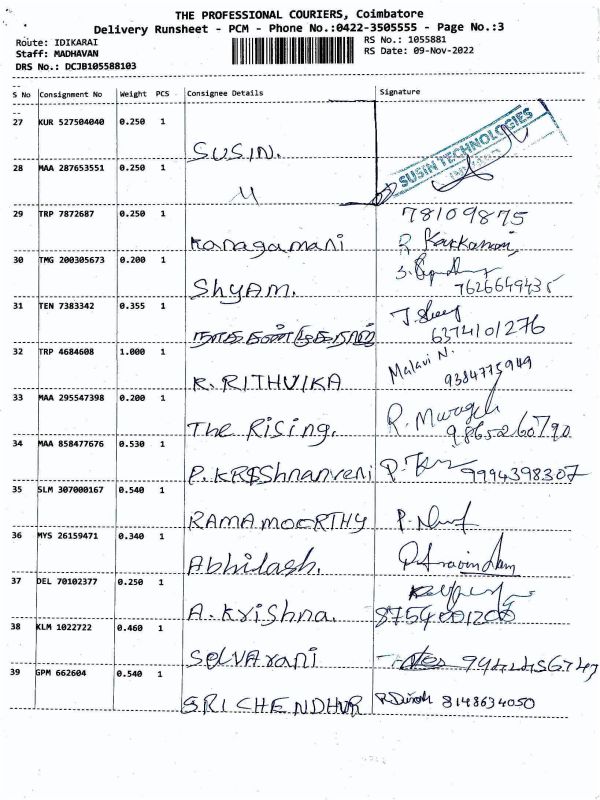 THE PROFESSIONAL COURIERS, Coimbatore
Delivery Runsheet - PCM - Phone No.:0422-3505555 - Page No.:3
Route: IDIKARAI
RS No.: 1055881
Staff: MADHAVAN
RS Date: 09-Nov-2022
DRS No.: DCJB105588103
S No Consignment No Weight PCS Consignee Details Signature
27 KUR 527504040 0.250 1 SUSIN.
SUSIN TECHNOLOGIES
28 MAA 287653551 0.250 1 "
29 TRP 7872687 0.250 1 Kanagamani
78109875
30 TMG 200305673 0.200 1 ShyAM.
7626649435
31 TEN 7383342 0.355 1
6374101276
32 TRP 4684608 1.000 1 K. RITHVIKA
Malavi N.
9384775949
33 MAA 295547398 0.200 1 The Rising.
9865260790
34 MAA 858477676 0.530 1 P. KRIShnanveni
9994398307
35 SLM 307000167 0.540 1 RAMAMOORTHY
36 MYS 26159471 0.340 1 Abhilash.
37 DEL 70102377 0.250 1 A. Krishna.
38 KLM 1022722 0.460 1 SELVArani
39 GPM 662604 0.540 1 SRI CHENDHUR
8148634050